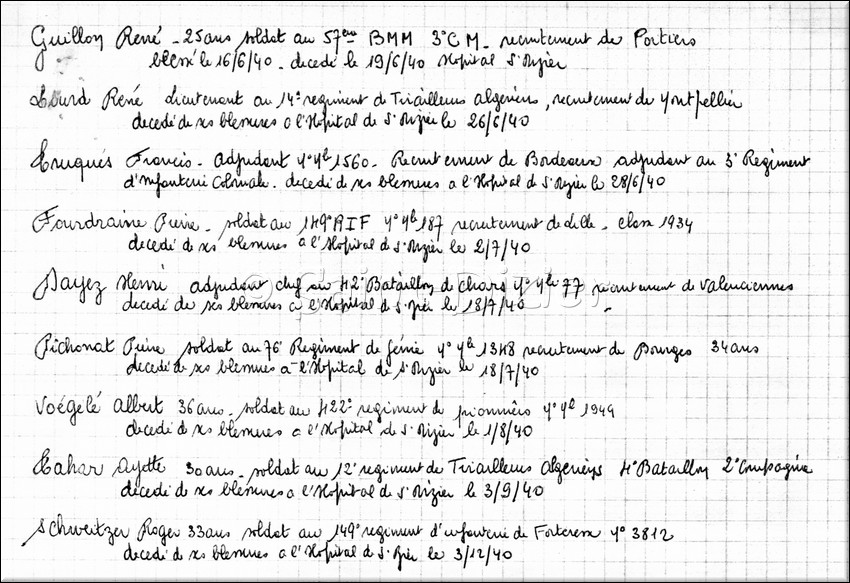 Guillon René - 25 ans soldat au 57ème BMM 3°CM - recrutement de Poitiers
blessé le 16/6/40 - décédé le 19/6/40 Hopital St Dizier
Lourd René Lieutenant au 14° regiment de Tirailleurs algeriens, recrutement de Montpellier
decedé de ses blessures a l'Hopital de St Dizier le 26/6/40
Francis - Adjudant N° Mle 1560 - Recrutement de Bordeaux adjudant au 3° Regiment
d'infanterie Coloniale - decedé de ses blessures a l'Hopital de St Dizier le 28/6/40
Fourdraine Pierre - soldat au 149° RIF N° Mle 187 recrutement de Lille - classe 1934
decedé de ses blessures a l'Hopital de St Dizier le 2/7/40
Dayez Henri adjudant chef au 42° Bataillon de chars N° Mle 77 recrutement de Valenciennes
decedé de ses blessures a l'Hopital de St Dizier le 18/7/40
Pichonat Pierre soldat au 76° Regiment de Génie N° Mle 1348 recrutement de Bourges 34 ans
decedé de ses blessures a l'Hopital de St Dizier le 18/7/40
Voégelé Albert 36 ans - soldat au 422° regiment de pionniers N° Mle 1949
decedé de ses blessures a l'Hopital de St Dizier le 1/8/40
30 ans - soldat au 12° regiment de Tirailleurs Algeriens 4° Bataillon 2° Compagnie
decedé de ses blessures a l'Hopital de St Dizier le 3/9/40
Schweitzer Roger 33 ans soldat au 149° regiment d'infanterie de Forteresse N° 3812
decedé de ses blessures a l'Hopital de St Dizier le 3/12/40